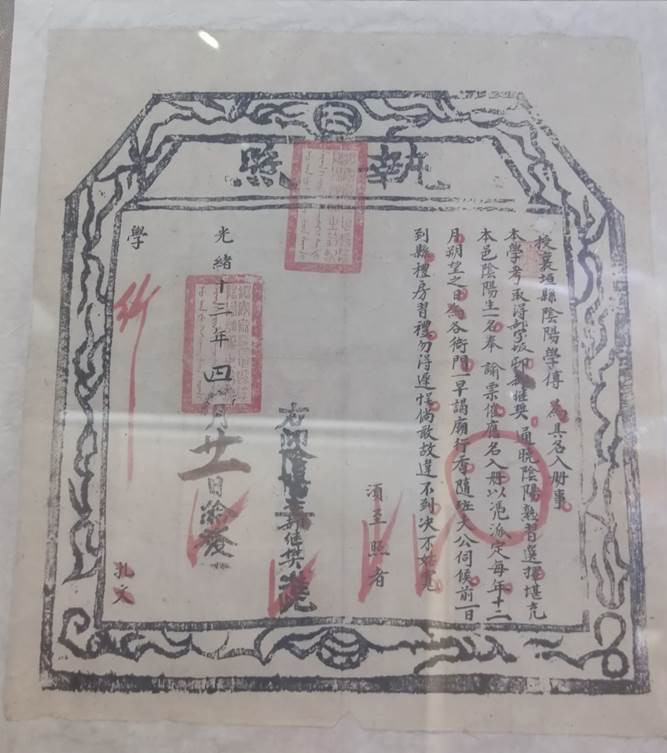 執照
授襄垣縣陰陽學傳 為具名入册事
本學考取得 繼奬通曉陰陽熟習選擇堪充
本邑陰陽生一名奉 諭票催應名入册以憑派定每年十二
月朔望之日為各衙門一早謁廟行香隨班大公伺候前一日
到縣禮房習禮勿得遲悮倘敢故違不到决不姑寬
須至照者
右 陰陽生 繼奬
光緒十三年四月廿一日給
學
行